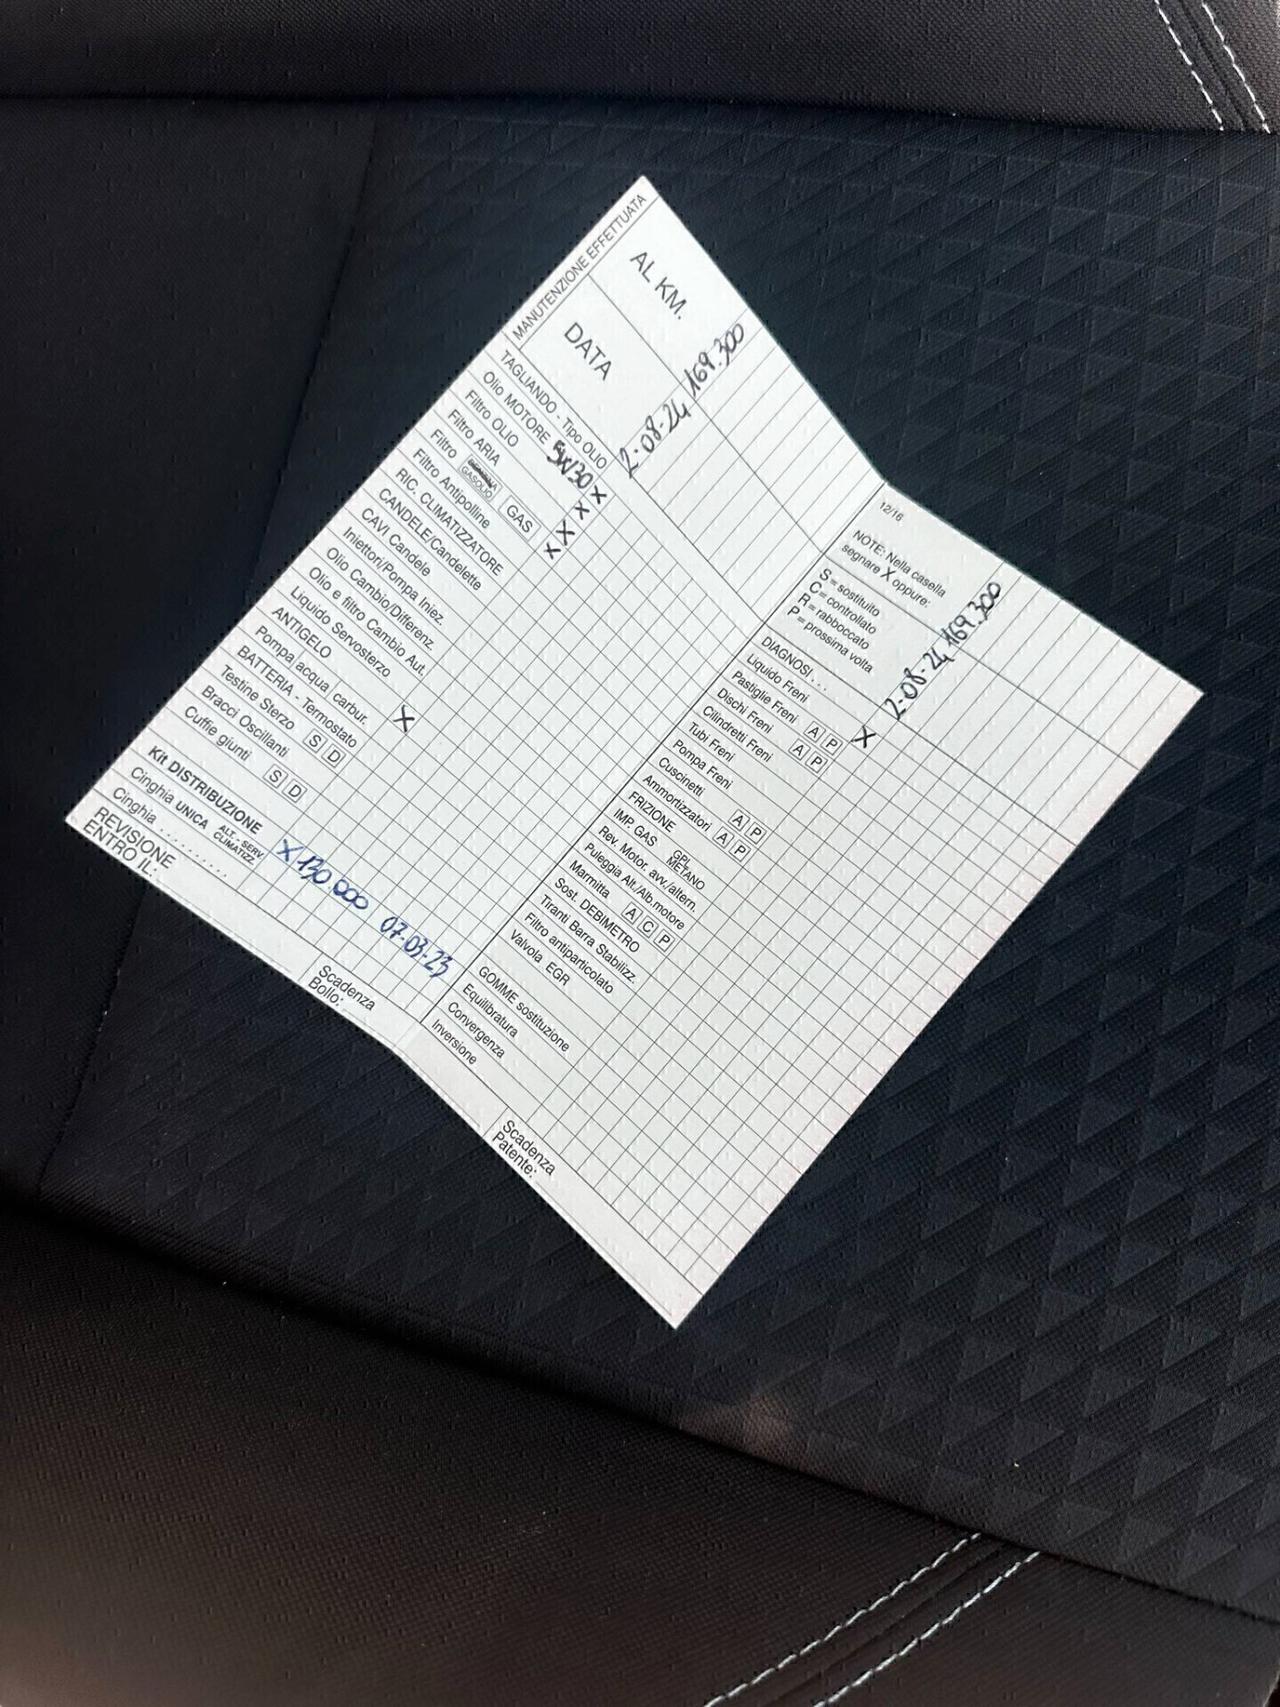 MANUTENZIONE EFFETTUATA
AL KM.
169.300
DATA
2-08-24
TAGLIANDO - Tipo OLIO
Olio MOTORE 5W30 X
Filtro OLIO X
Filtro ARIA X
Filtro GASOLIO GAS X
Filtro Antipolline X
RIC. CLIMATIZZATORE
CANDELE/Candelette
CAVI Candele
Iniettori/Pompa Iniez.
Olio Cambio/Differenz.
Olio e filtro Cambio Aut.
Liquido Servosterzo
ANTIGELO
Pompa acqua / carbur. X
BATTERIA - Termostato
Testine Sterzo S D
Bracci Oscillanti
Cuffie giunti S D
Kit DISTRIBUZIONE X 130000 07-03-23
Cinghia UNICA ALT. - SERV. CLIMATIZZ.
Cinghia . . . . . . . . . .
REVISIONE
ENTRO IL:
Scadenza
Bollo:
12/16
NOTE: Nella casella
segnare X oppure:
S = sostituito
C = controllato
R = rabboccato
P = prossima volta
2-08-24 169.300
DIAGNOSI . . .
Liquido Freni X
Pastiglie Freni A P
Dischi Freni A P
Cilindretti Freni
Tubi Freni
Pompa Freni
Cuscinetti A P
Ammortizzatori A P
FRIZIONE
IMP. GAS GPL METANO
Rev. Motor. avv./altern.
Puleggia Alt./Alb.motore
Marmitta A C P
Sost. DEBIMETRO
Tiranti Barra Stabilizz.
Filtro antiparticolato
Valvola EGR
GOMME sostituzione
Equilibratura
Convergenza
Inversione
Scadenza
Patente: